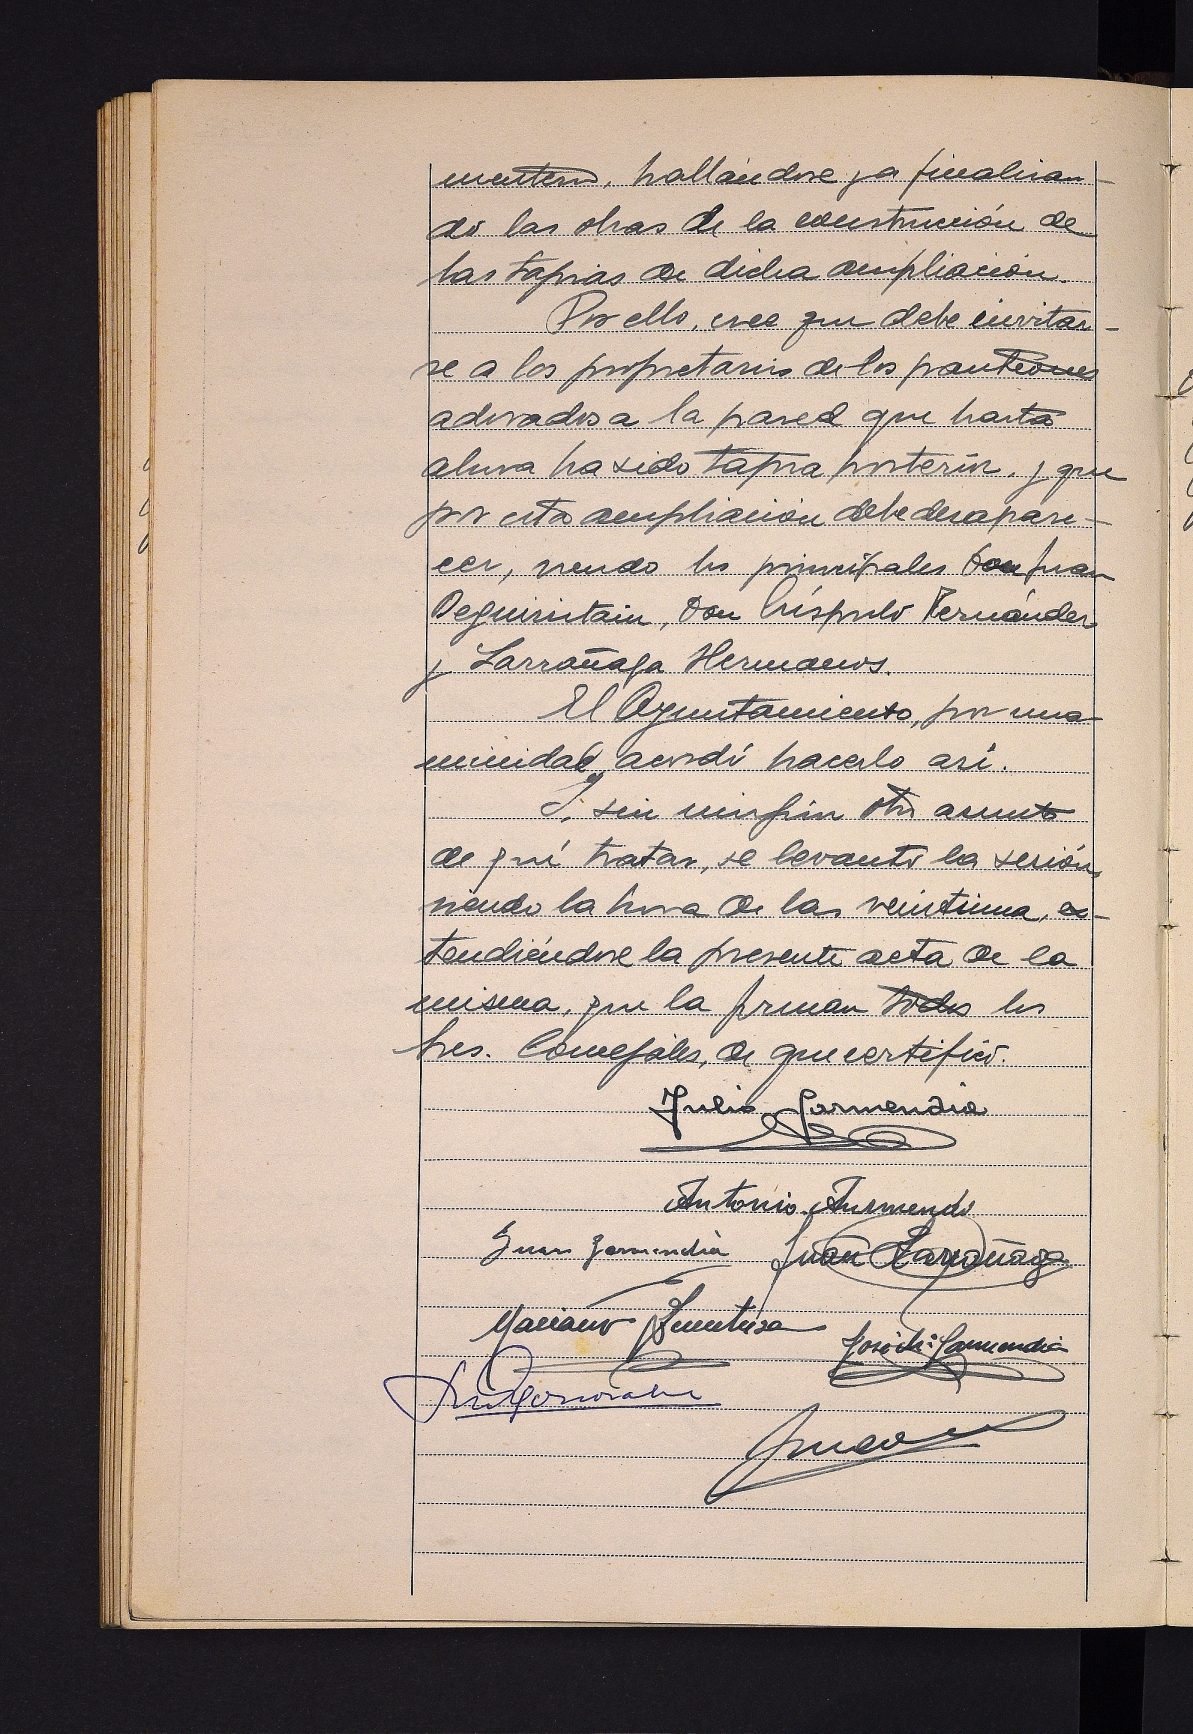 menterio, hallándose ya finalizan-
do las obras de la construcción de
las tapias de dicha ampliación.
Por ello, cree que debe invitar-
se a los propietarios de los panteones
adosados a la pared que hasta
ahora ha sido tapia posterior, y que
por esta ampliación debe desapare-
cer, siendo los principales Don Juan
Oeguiristain, Don Críspulo Fernández
y Larrañaga Hermanos.
El Ayuntamiento, por una-
nimidad, acordó hacerlo así.
Y, sin ningún otro asunto
de qué tratar, se levantó la sesión,
siendo la hora de las veintiuna, ex-
tendiéndose la presente acta de la
misma, que la firman todos los
Sres. Concejales, de que certifico.
Julio Garmendia
Antonio
Juan Garmendia Juan Larrañaga
Mariano
José Mª Garmendia